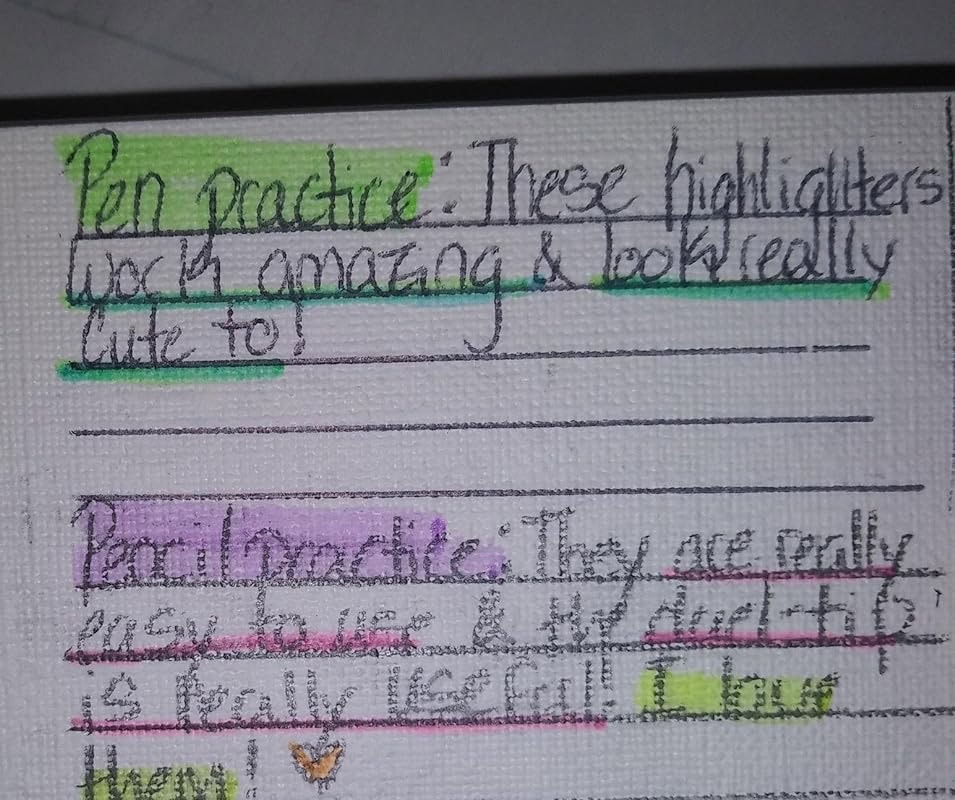 Pen practice: These highlighters
work amazing & look really
Cute to!
Pencil practice: They are really
easy to use & the duel-tips
is really useful! I love
them!